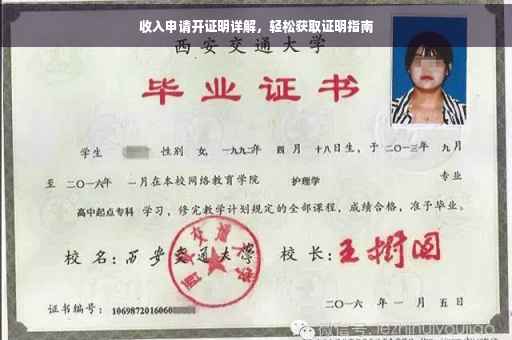 收入申请开证明详解，轻松获取证明指南
西安交通大学
毕业证书
学生 性别 女，一九九二年 四 月 十八日生，于 二〇一三年 九月
至 二〇一六年 一月在本校网络教育学院 护理学 专业
高中起点专科 学习，修完教学计划规定的全部课程，成绩合格，准予毕业。
校 名：西安交通大学 校 长：王树国
证书编号：1069872016060
二〇一六 年 一 月 五 日
微信号: jezhinuiyoujiao